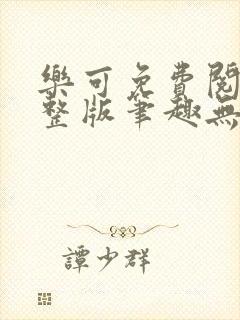 樂可免費閱
整版筆趣無
譚少群